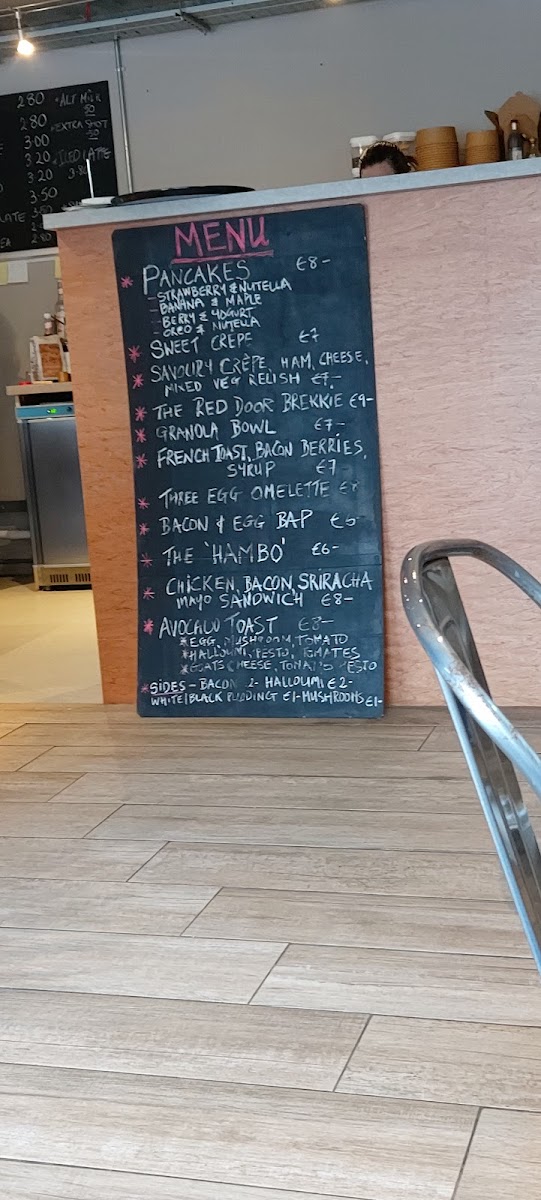 280 *ALT MILK
50
280 *EXTRA SHOT
50
3.00
3.20 *ICED LATTE
3.20
3.50
MENU
* PANCAKES €8-
- STRAWBERRY & NUTELLA
- BANANA & MAPLE
- BERRY & YOGURT
- OREO & NUTELLA
* SWEET CREPE €7
* SAVOURY CRÊPE, HAM, CHEESE,
MIXED VEG RELISH €7,-
* THE RED DOOR BREKKIE €9-
* GRANOLA BOWL €7-
* FRENCH TOAST, BACON BERRIES,
SYRUP €7
* THREE EGG OMELETTE
* BACON & EGG BAP
* THE 'HAMBO' €6-
* CHICKEN, BACON SRIRACHA
MAYO SANDWICH €8-
* AVOCADO TOAST €8-
* EGG, MUSHROOM, TOMATO
* HALLOUMI, PESTO, TOMATES
* GOATS CHEESE, PESTO
* SIDES - BACON 2- HALLOUMI €2-
WHITE/BLACK PUDDING €1- MUSHROOMS €1-